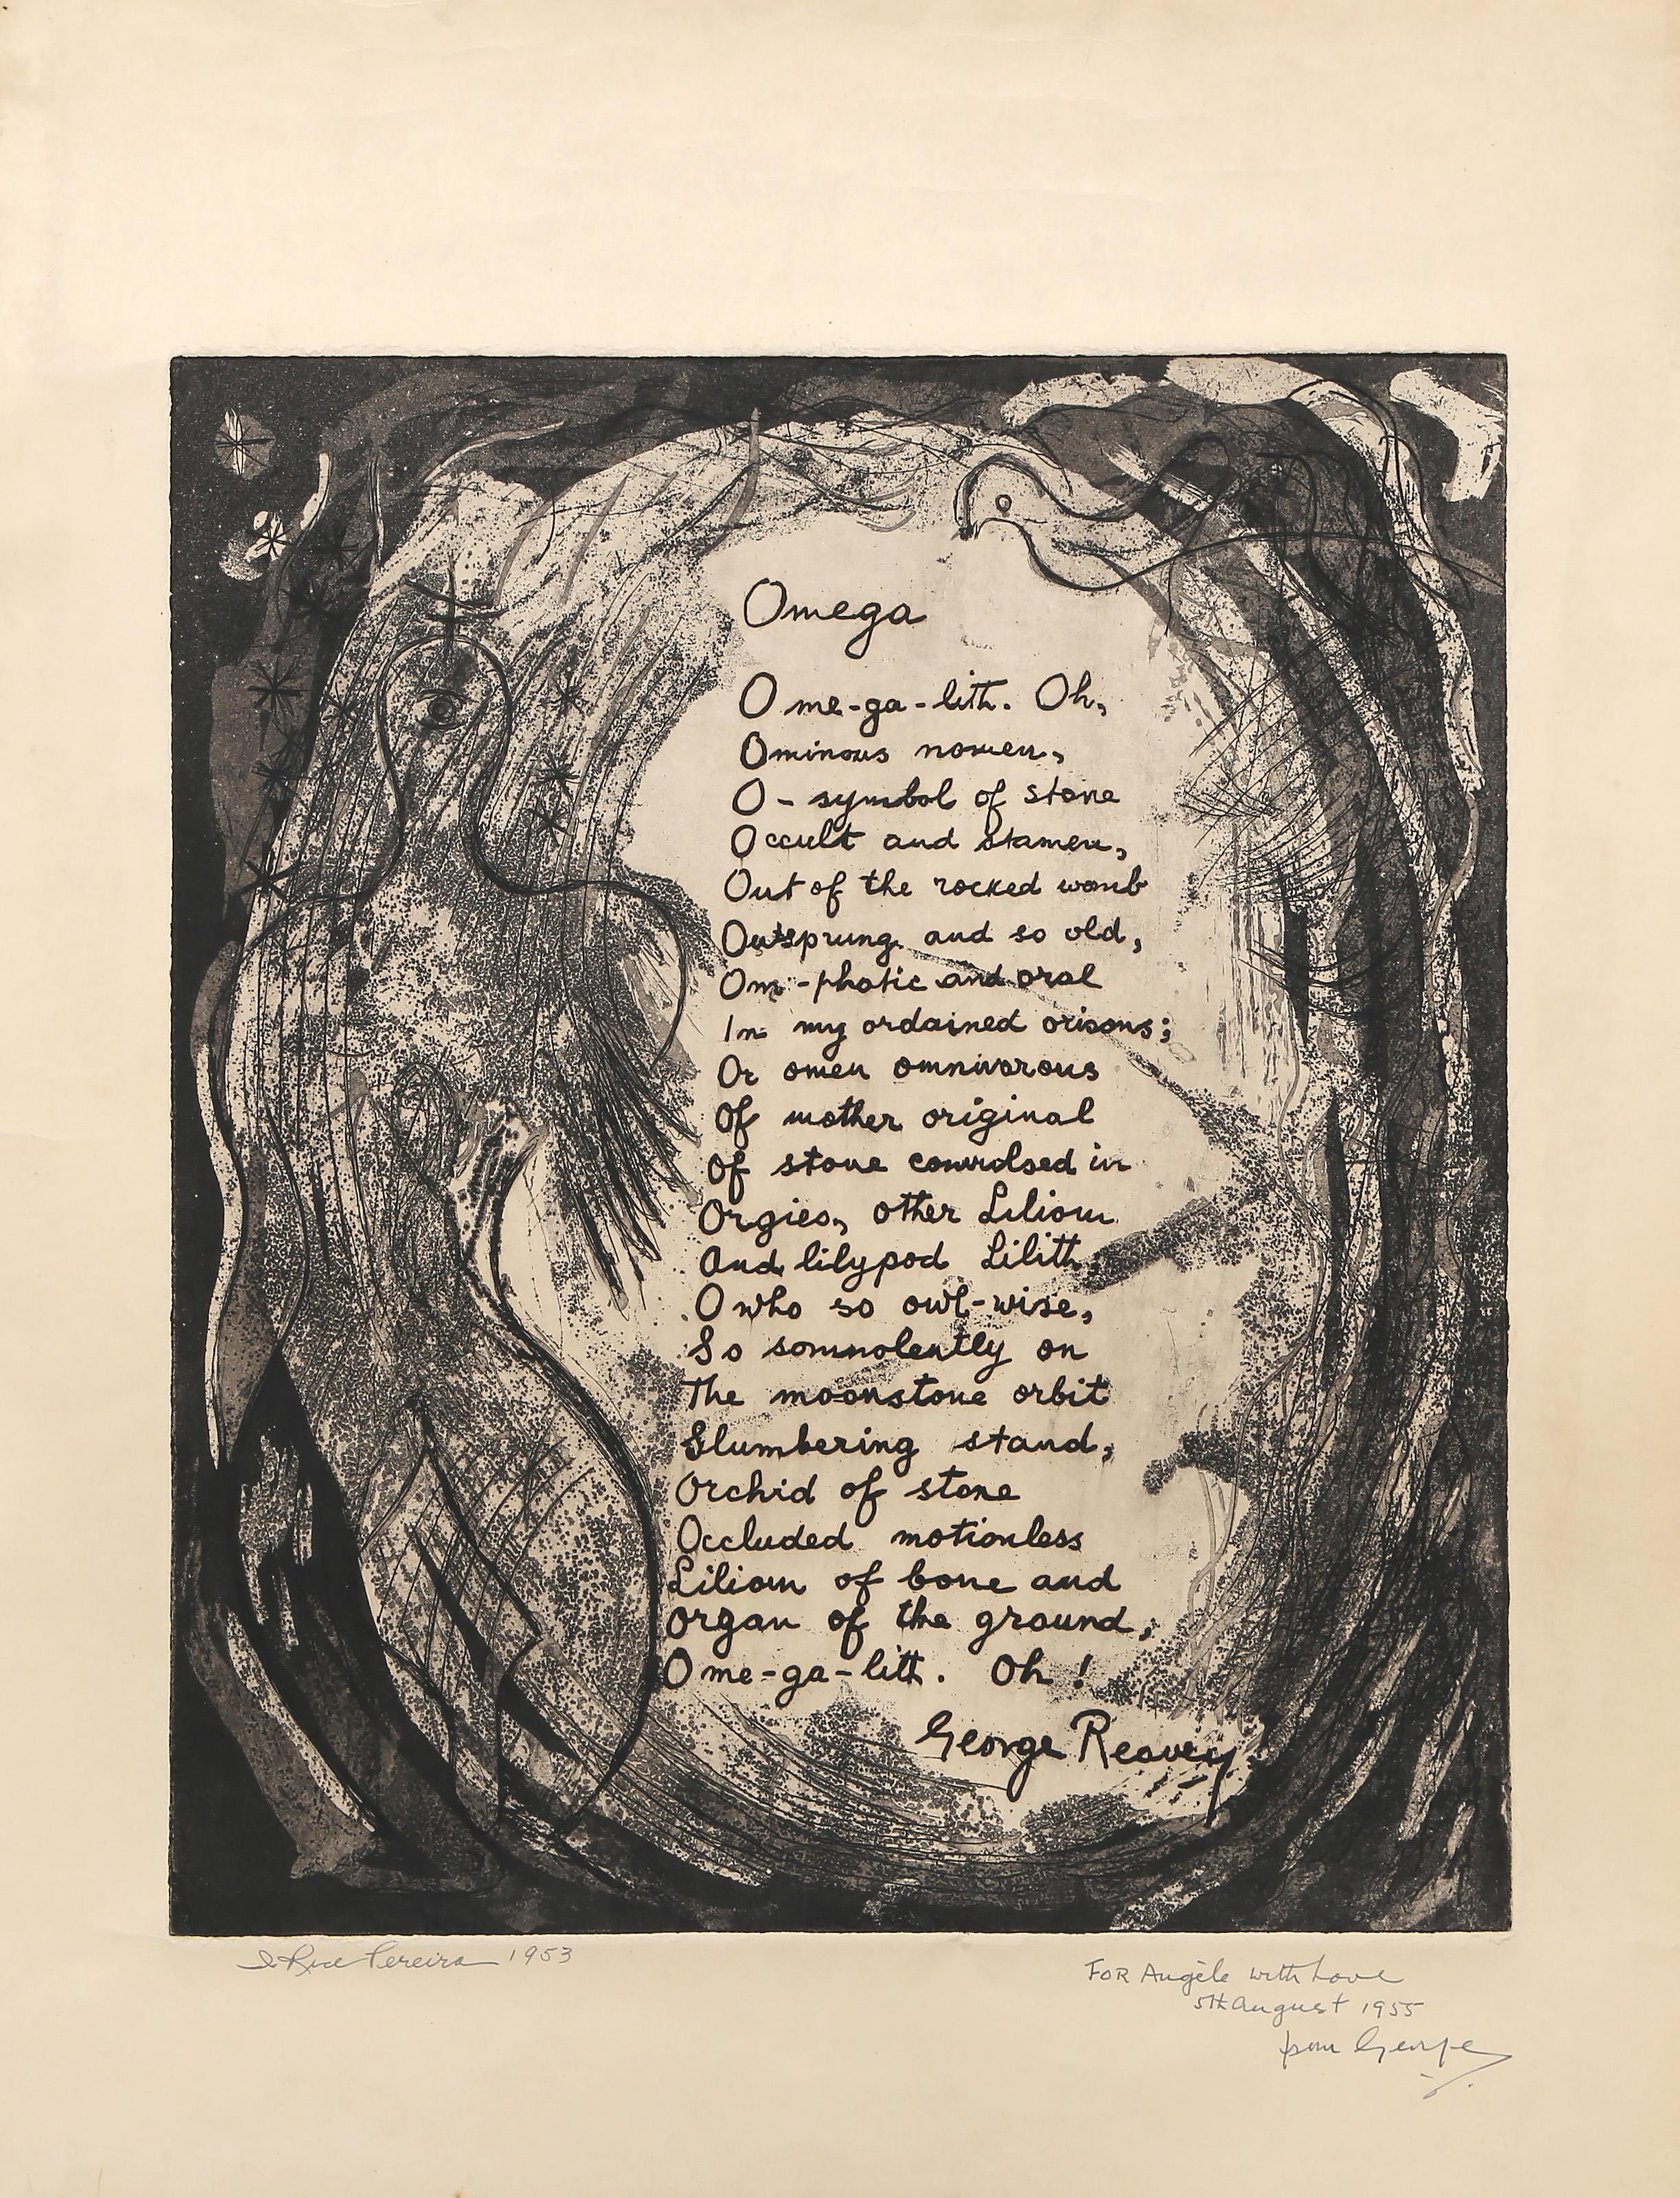 Omega
O me-ga-lith. Oh,
Ominous nomen,
O-symbol of stone
Occult and stamen,
Out of the rocked womb
Outsprung and so old,
Om-phatic and oral
In my ordained orisons;
Or omen omnivorous
Of mother original
Of stone convulsed in
Orgies, other Lilion
And lilypod Lilith,
O who so owl-wise,
So somnolently on
The moonstone orbit
Slumbering stand,
Orchid of stone
Occluded motionless
Lilion of bone and
organ of the ground,
O me-ga-lith. Oh!
George Reavey
I Rice Pereira 1953
FOR Angèle with Love
5th August 1955
from George